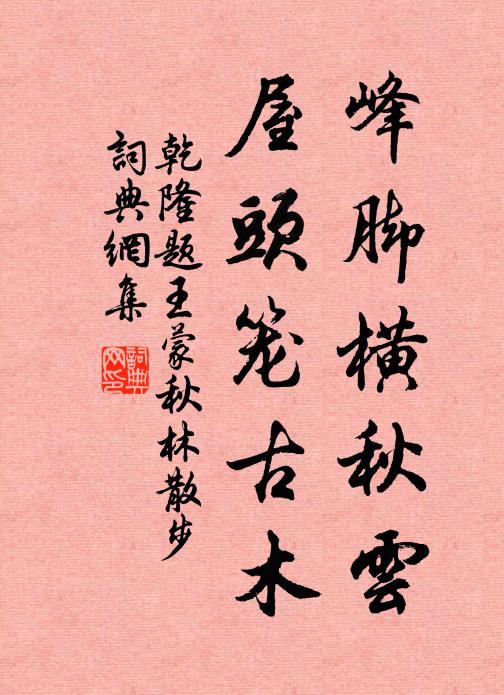 峰脚橫秋雲
屋頭笼古木
乾隆题王蒙秋林散步
詞典網集
詞典網印